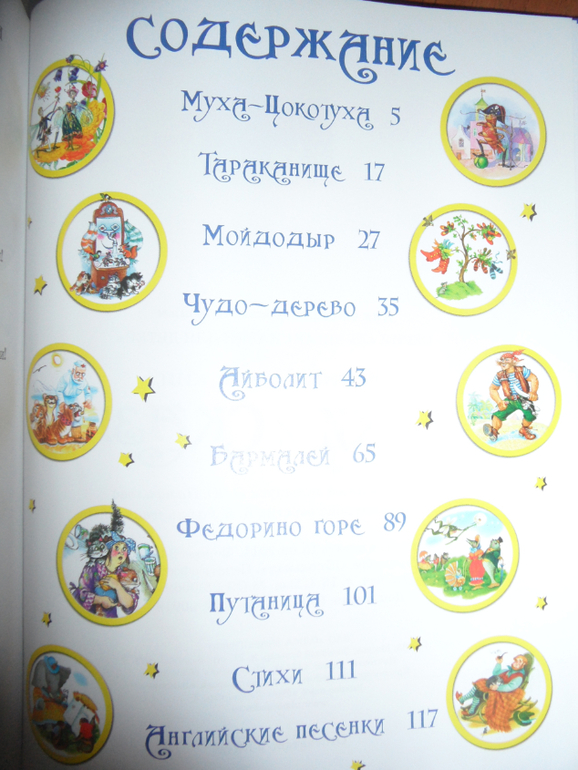 СОДЕРЖАНИЕ
Муха-Цокотуха 5
Тараканище 17
Мойдодыр 27
Чудо-дерево 35
Айболит 43
Бармалей 65
Федорино горе 89
Путаница 101
Стихи 111
Английские песенки 117